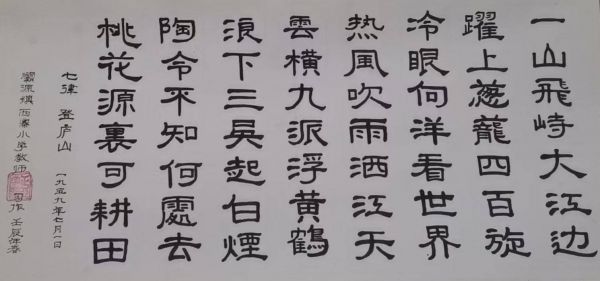 一山飛峙大江边
躍上葱龍四百旋
冷眼向洋看世界
热風吹雨洒江天
雲横九派浮黄鶴
浪下三吴起白煙
陶令不知何處去
桃花源裏可耕田
七律 登庐山
一九五九年七月一日
源鎮西寨小學教师 习作 壬辰年春